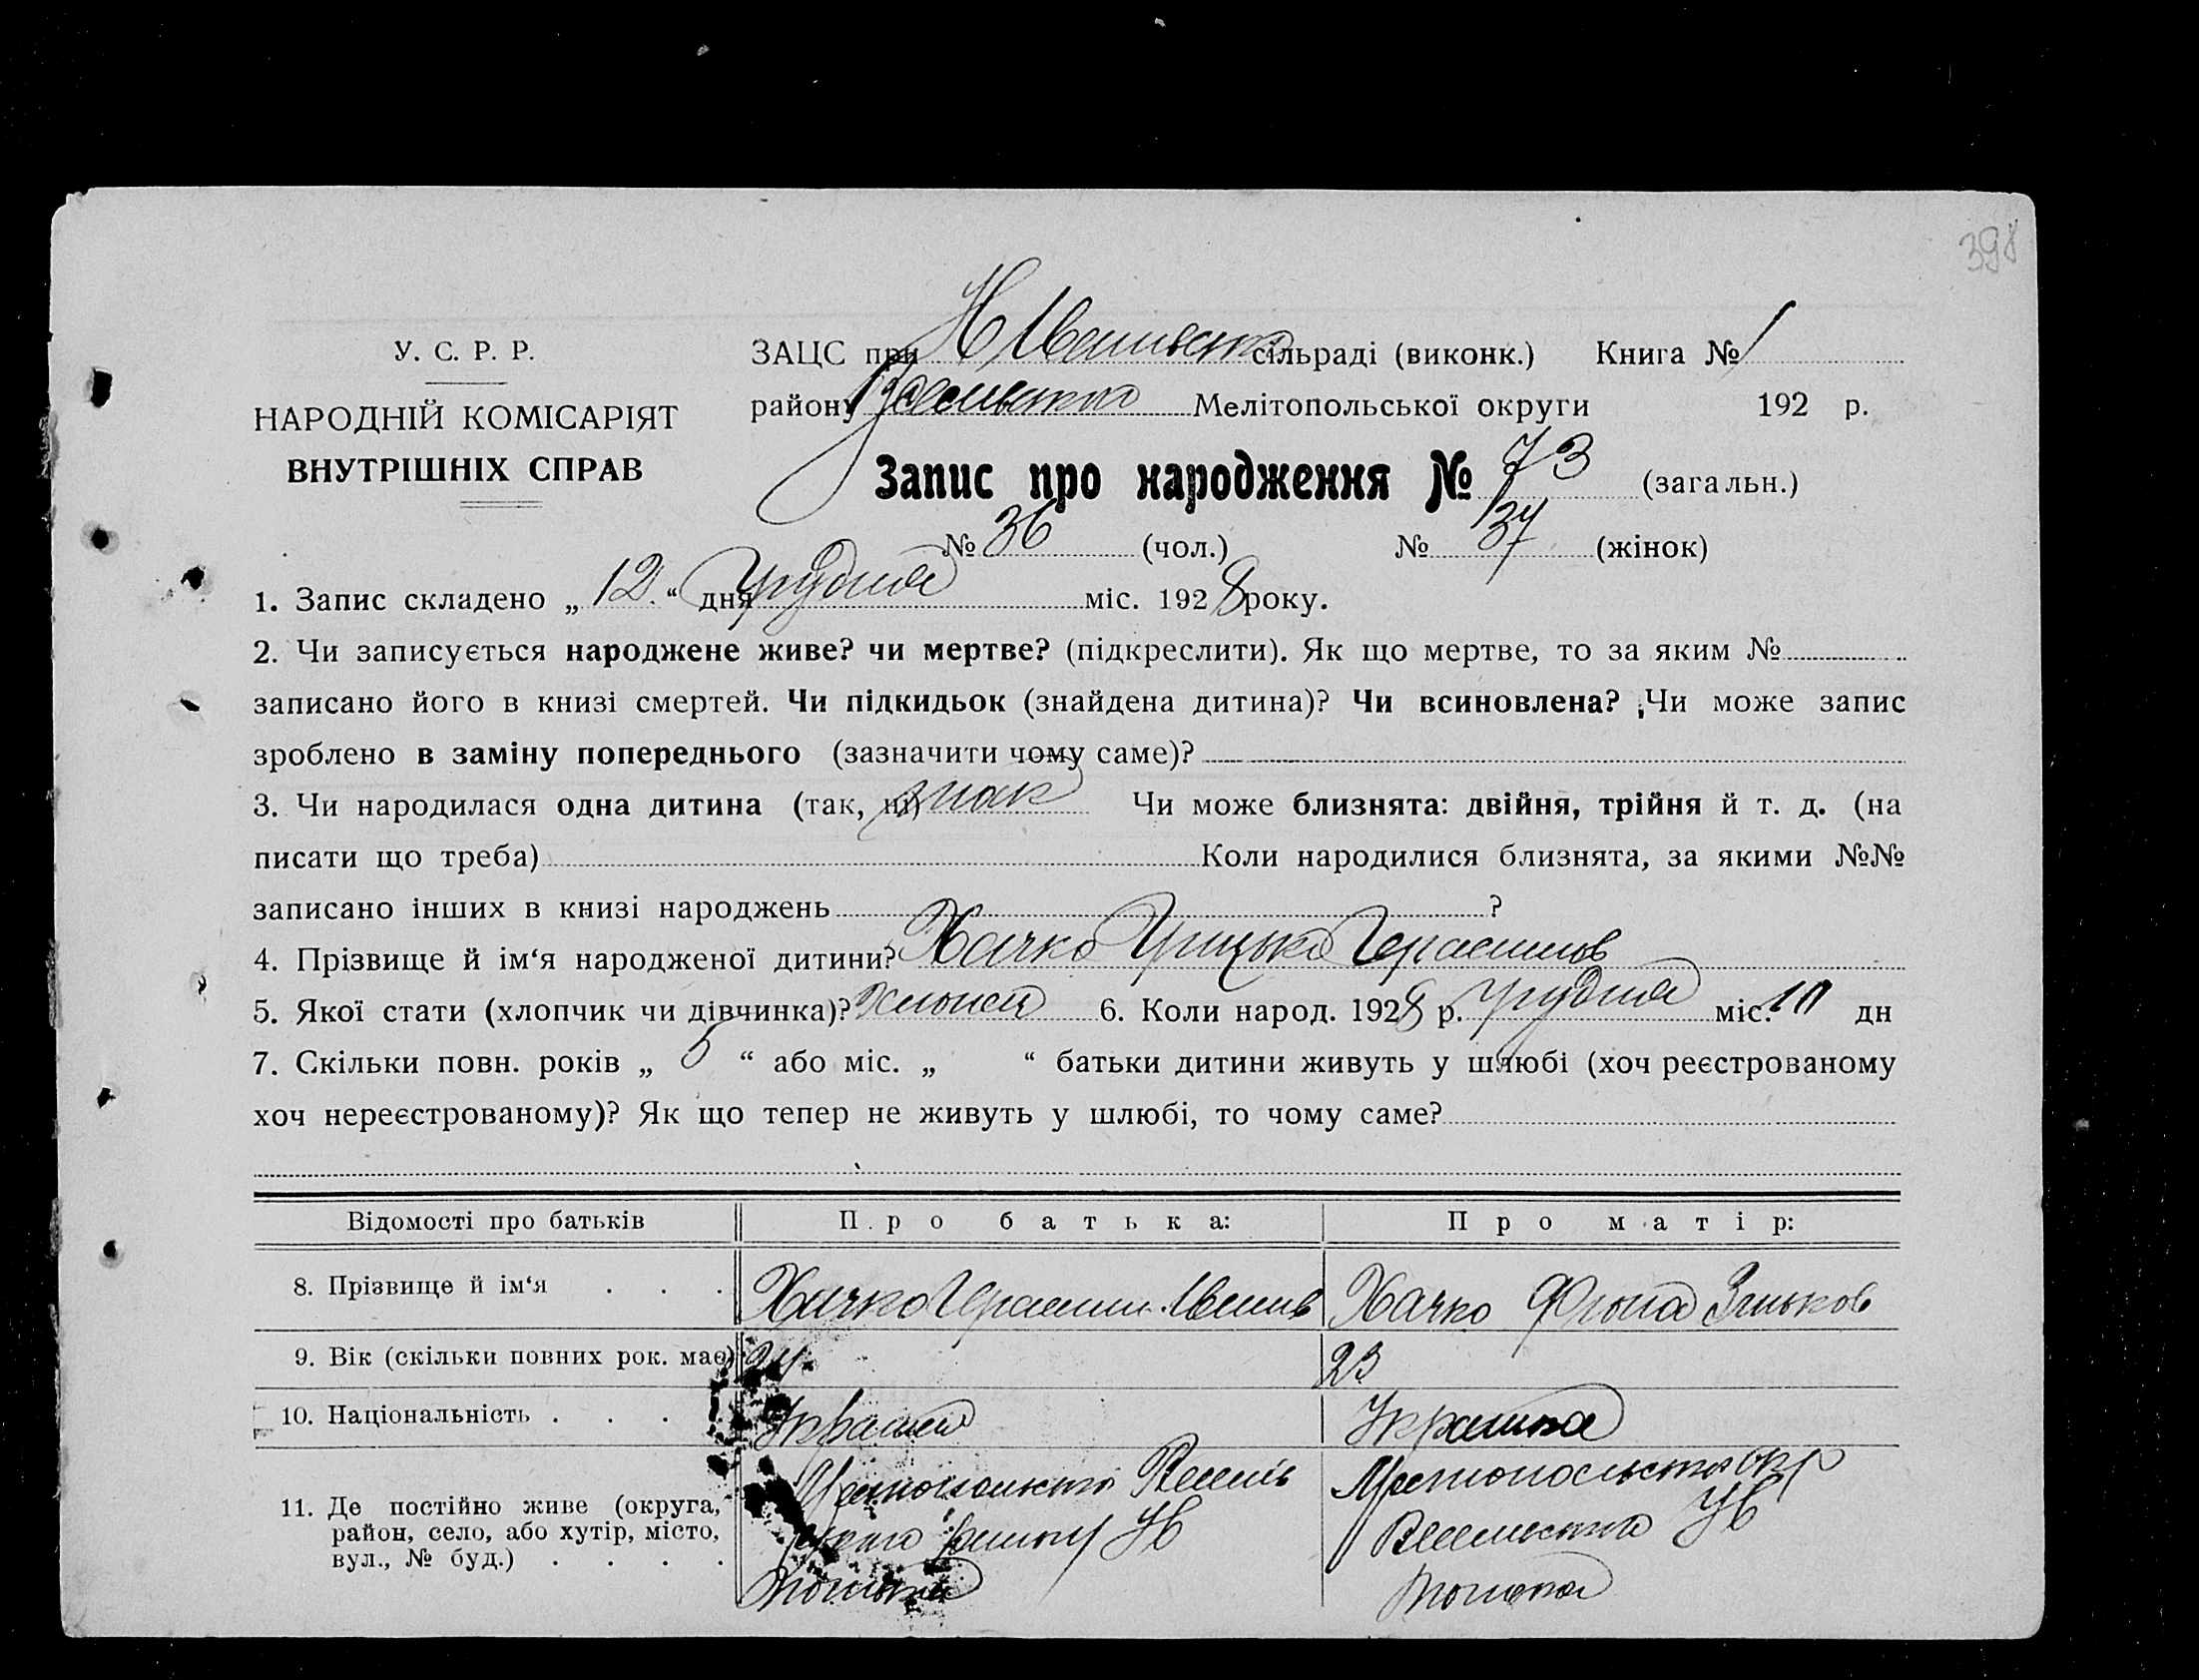 398
У. С. Р. Р.
НАРОДНІЙ КОМІСАРІЯТ
ВНУТРІШНІХ СПРАВ
ЗАЦС при Н сільраді (виконк.) Книга № 1
району Мелітопольської округи 192 р.
Запис про народження № 73 (загальн.)
№ 36 (чол.) № 37 (жінок)
1. Запис складено „ 12 “ дня Грудня міс. 1928 року.
2. Чи записується народжене живе? чи мертве? (підкреслити). Як що мертве, то за яким №
записано його в книзі смертей. Чи підкидьок (знайдена дитина)? Чи всиновлена? Чи може запис
зроблено в заміну попереднього (зазначити чому саме)?
3. Чи народилася одна дитина (так, ні) так Чи може близнята: двійня, трійня й т. д. (на
писати що треба) Коли народилися близнята, за якими №№
записано інших в книзі народжень ?
4. Прізвище й ім‘я народженої дитини? Хачко Грицько Герасимов
5. Якої стати (хлопчик чи дівчинка)? 6. Коли народ. 1928 р. Грудня міс. 10 дн
7. Скільки повн. років „ 5 “ або міс. „ “ батьки дитини живуть у шлюбі (хоч реєстрованому
хоч нереєстрованому)? Як що тепер не живуть у шлюбі, то чому саме?
Відомості про батьків Про батька: Про матір:
8. Прізвище й ім‘я . . . Хачко Герасим Хачко
9. Вік (скільки повних рок. має) 24 23
10. Національність . . . Українка
11. Де постійно живе (округа, район, село, або хутір, місто, вул., № буд.) . . . .